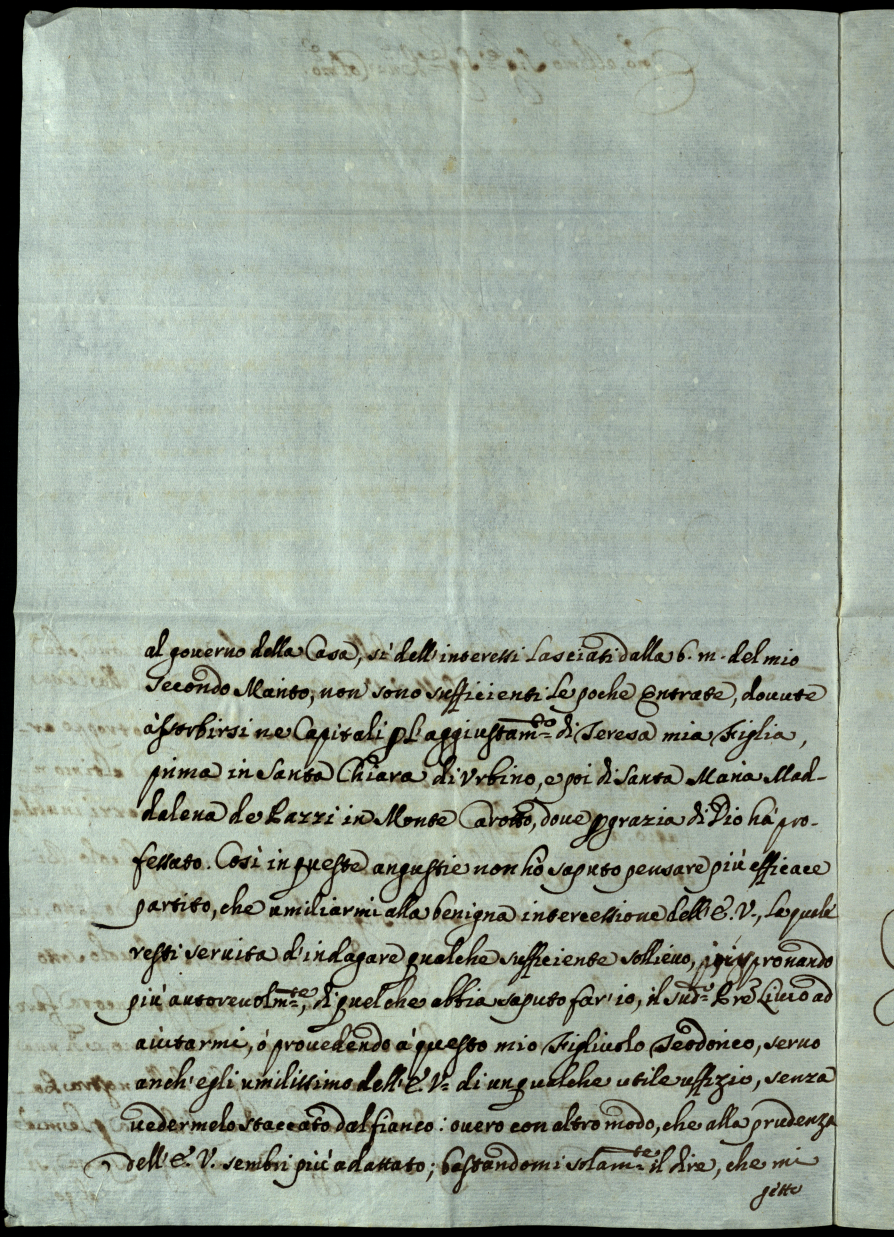 al governo della Casa, sì dell'interessi lasciati dalla b. m. del mio
Secondo Marito, non sono sufficienti le poche Entrate, dovute
assorbirsi ne Capitali p L'aggiustam.to di Teresa mia Figlia,
prima in Santa Chiara di Urbino, e poi di Santa Maria Mad-
dalena de Pazzi in Monte Carotto, dove p grazia di Dio hà pro-
fessato. Così in queste angustie non hò saputo pensare più efficace
partito, che umiliarmi alla benigna intercessione dell'E. V., la quale
resti servita d'indagare qualche sufficiente sollievo, ò spronando
più autorevolm.te, di quel che abbia saputo far'io, il sud.o Pre Livio ad
aiutarmi, ò provedendo à questo mio Figliuolo Teodorico, servo
anch'egli umilissimo dell'E. V. di un qualche utile uffizio, senza
vedermelo staccato dal fianco: overo con altro modo, che alla prudenza
dell'E. V. sembri più adattato; bastandomi solam.te il dire, che mi
gètto